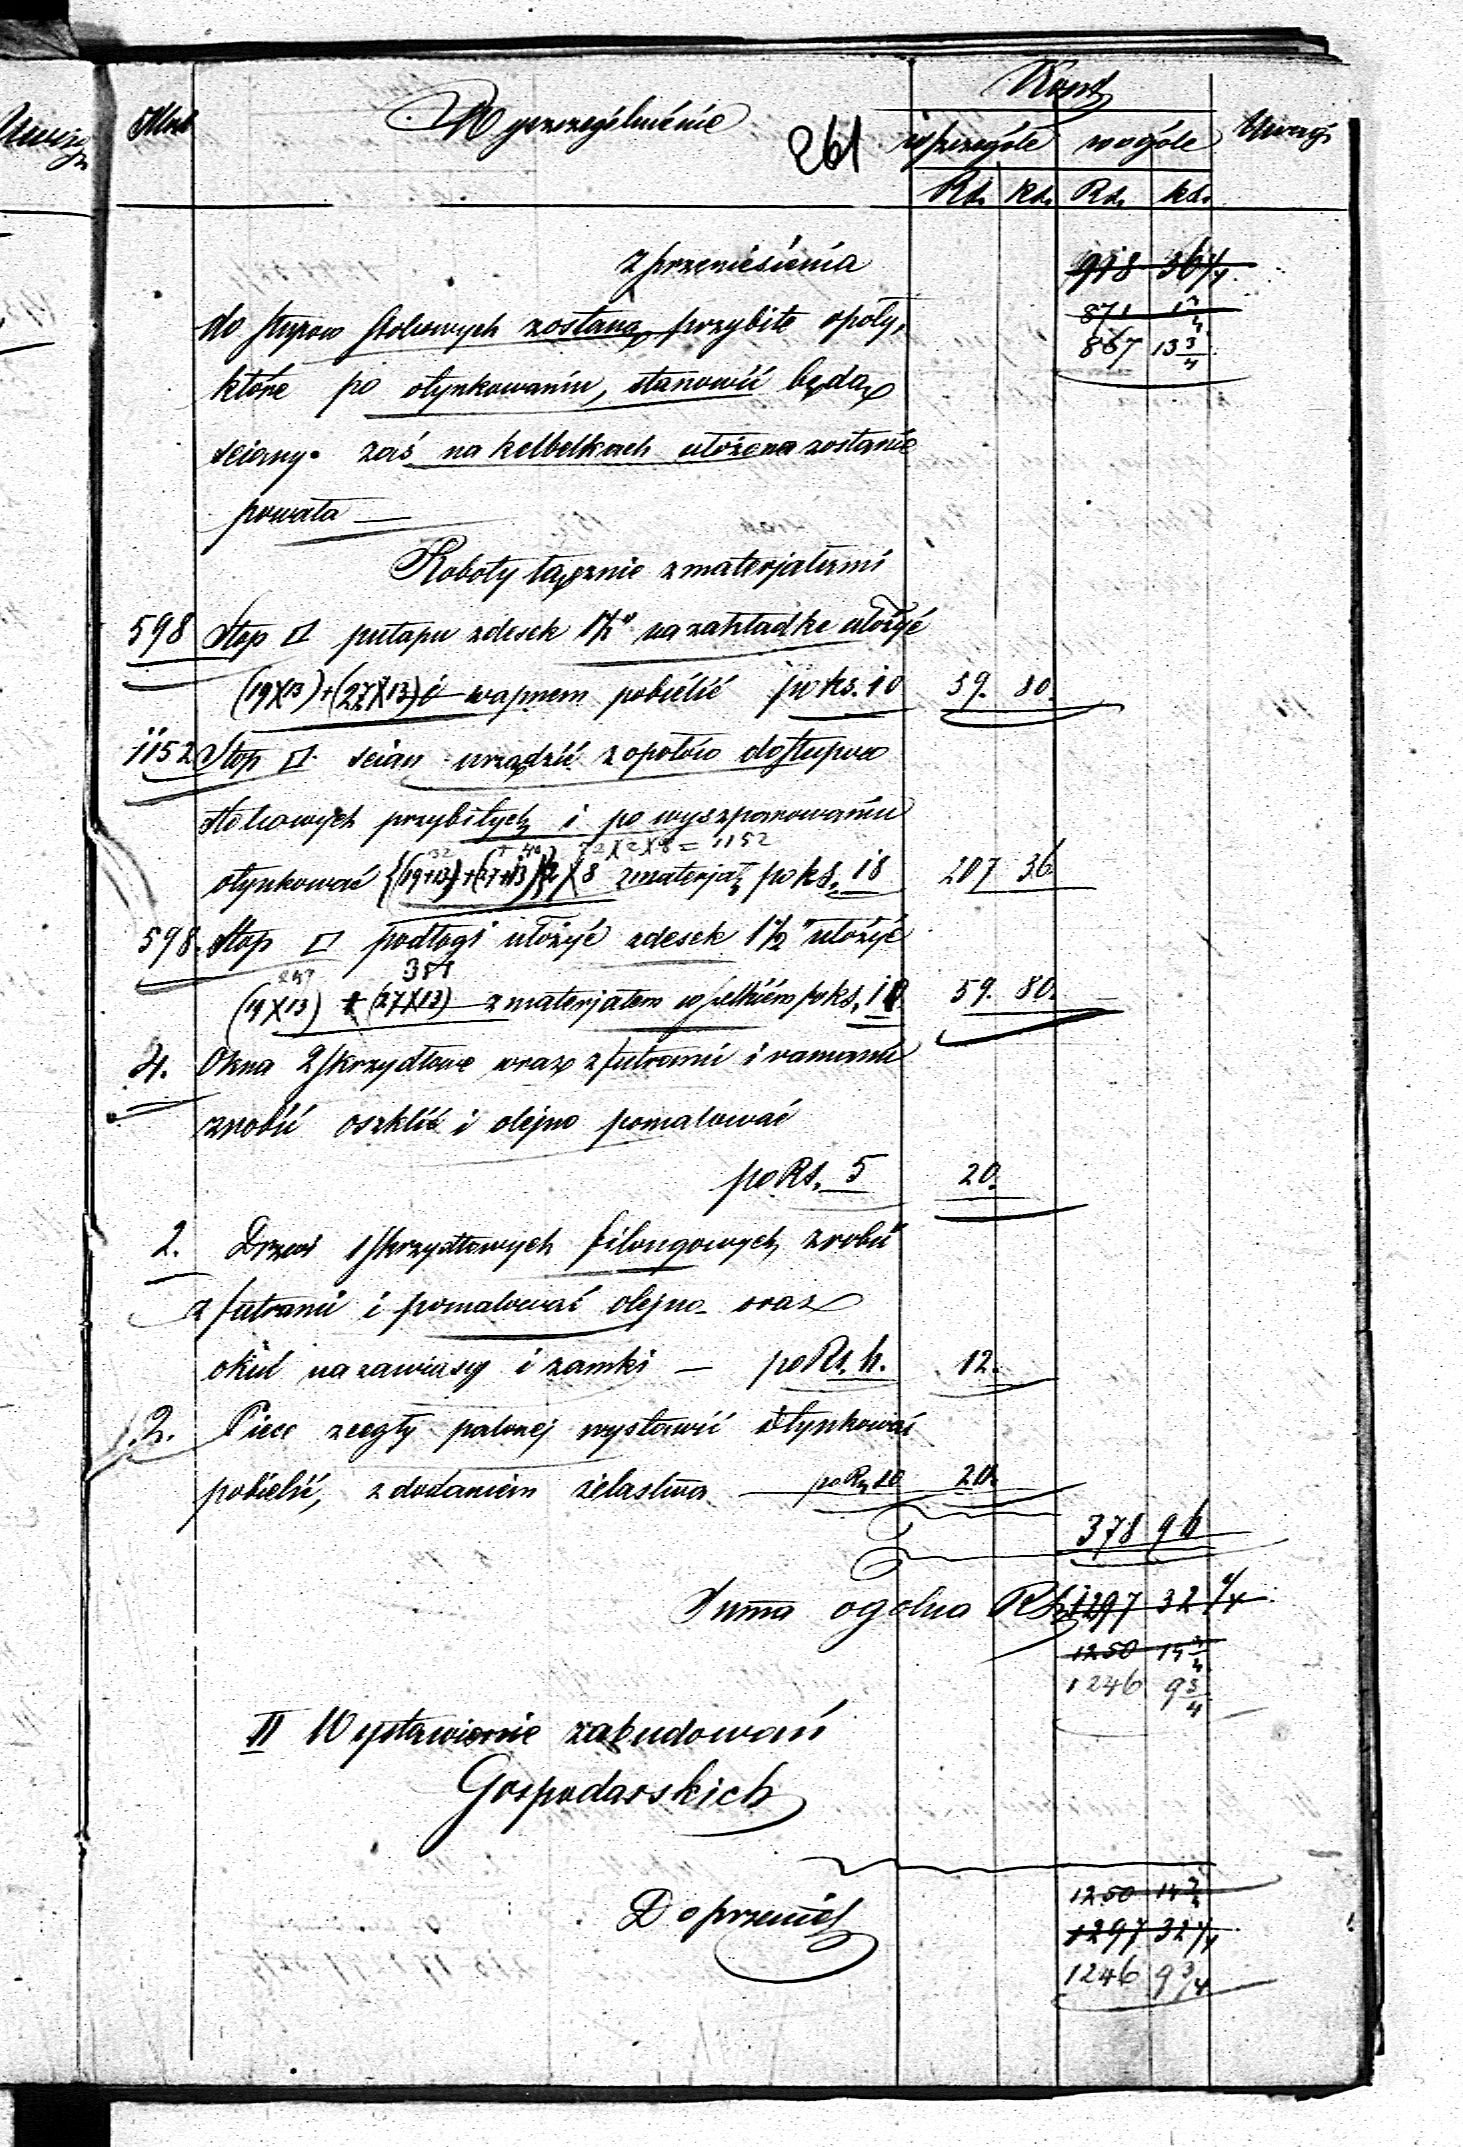 Ilość Wyszczególnienie 261 Koszt Uwagi
wszczególe wogóle
Rs. ks. Rs. ks.
z przeniesienia 918 36 1/4
871 1
do słupow stolcowych zostaną przybite opoły, 867 13 3/4
które po otynkowaniu, stanowić będą
sciany. zaś na belkach ułożona zostanie
powała —
Roboty łącznie z materjałami
598 Stop □ pułapu z desek 1 1/2" na zakładkę ułożyć
(19X13)+(27X13) i wapnem pobielić po ks. 10 59. 80.
1152 Stop □ scian urządzić z opołów do słupow
stolcowych przybitych i po wyszpanowaniu
32 + 40 72X2X8 = 1152
otynkować {(19+13)+(27+13)}2X8 z materjał. po ks. 18 207 36
598. Stop □ podłogi ułożyć z desek 1 1/2" ułożyć
247 351
(19X13) + (27X13) z materjałem wszelkiem po ks. 10. 59. 80.
4. Okna 2 skrzydłowe wraz z futrami i ramami
zrobić oszklić i olejno pomalować
po Rs. 5 20.
2. Drzwi 1 skrzydłowych filongowych zrobić
z futrami i pomalować olejno oraz
okuć na zawiasy i zamki — po Rs. 6. 12.
2. Piece z cegły palonej wystawić otynkować
pobielić, z dodaniem żelastwa po Rs 10 20.
378 96
Suma ogólna Rs. 1297 32 1/4
1250
1246 9 3/4
II Wystawienie zabudowań
Gospodarskich
1250
Do przenies. 1297 32 1/4
1246 9 3/4